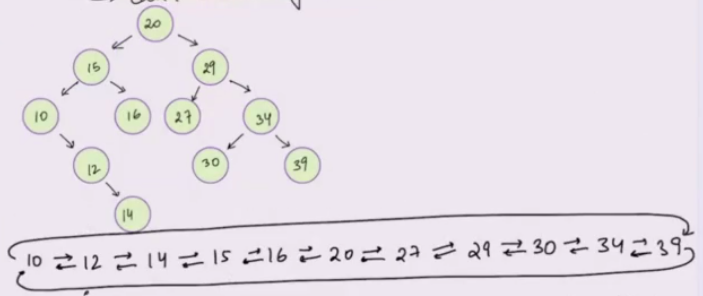 20
15 29
10 16 27 34
12 30 39
14
10 ⇄ 12 ⇄ 14 ⇄ 15 ⇄ 16 ⇄ 20 ⇄ 27 ⇄ 29 ⇄ 30 ⇄ 34 ⇄ 39